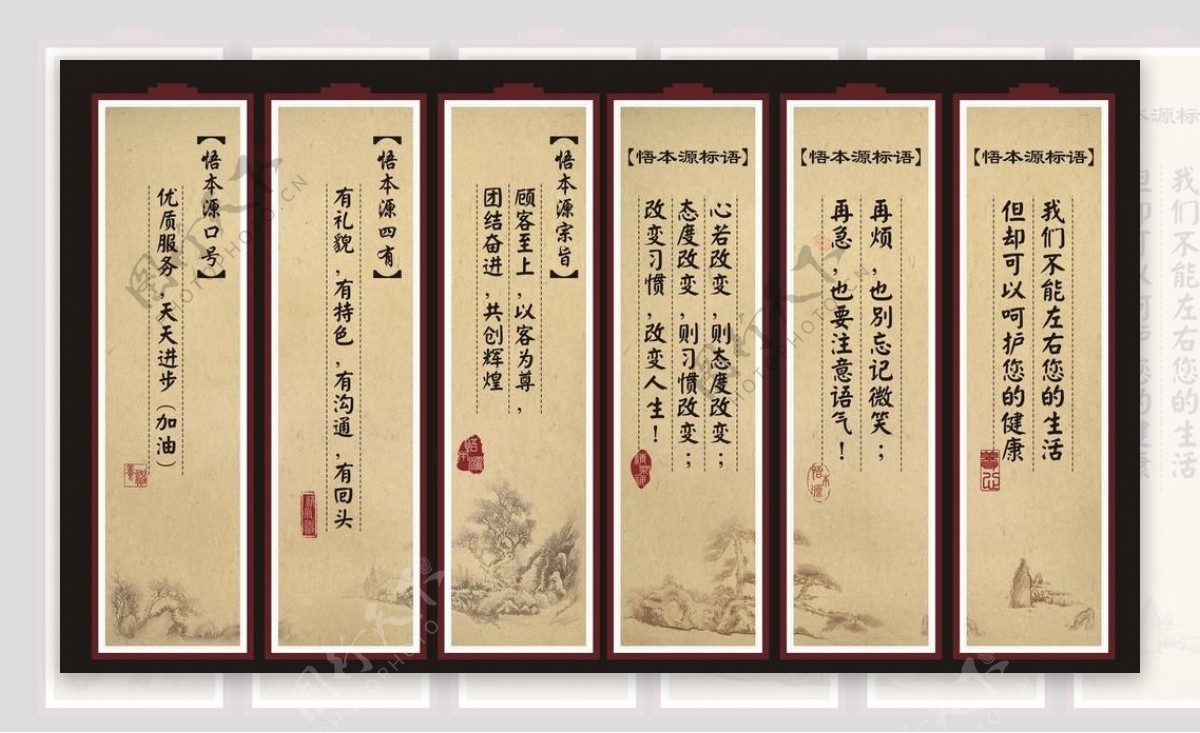 【悟本源口号】
优质服务，天天进步（加油）
【悟本源四有】
有礼貌，有特色，有沟通，有回头
【悟本源宗旨】
顾客至上，以客为尊，
团结奋进，共创辉煌
【悟本源标语】
心若改变，则态度改变；
态度改变，则习惯改变；
改变习惯，改变人生！
【悟本源标语】
再烦，也别忘记微笑；
再急，也要注意语气！
【悟本源标语】
我们不能左右您的生活
但却可以呵护您的健康